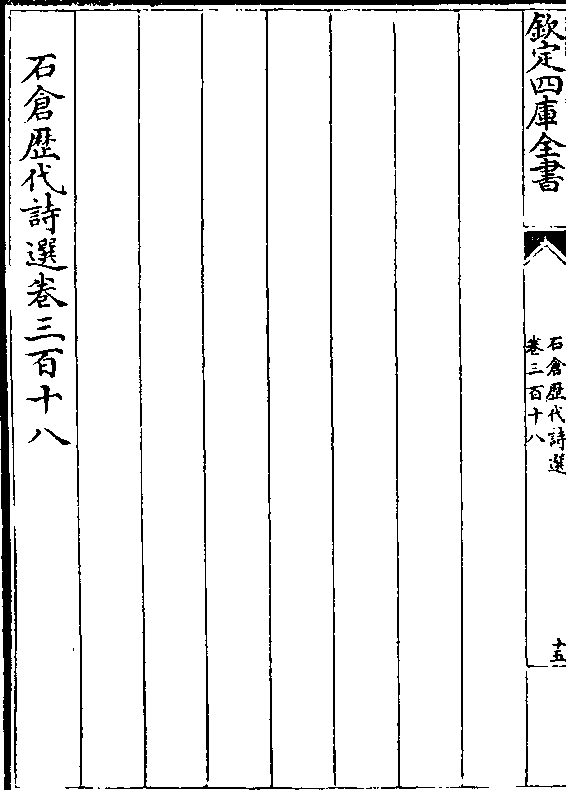 欽定四庫全書
石倉歷代詩選
卷三百十八
十五
石倉歷代詩選卷三百十八